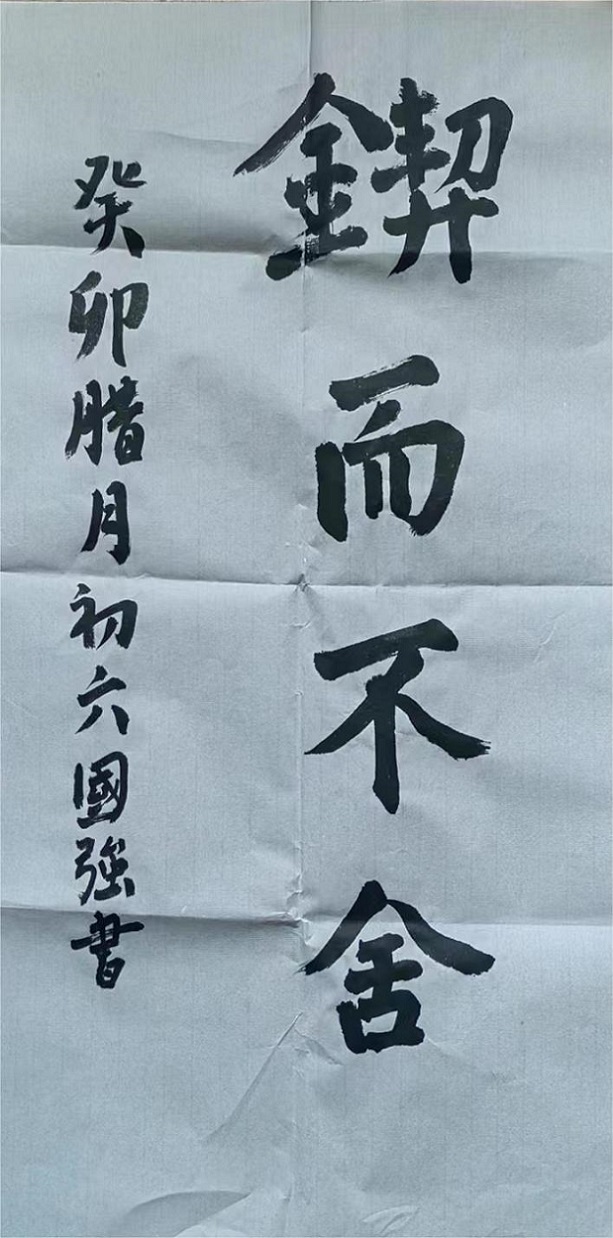 鍥而不舍
癸卯腊月初六國強書